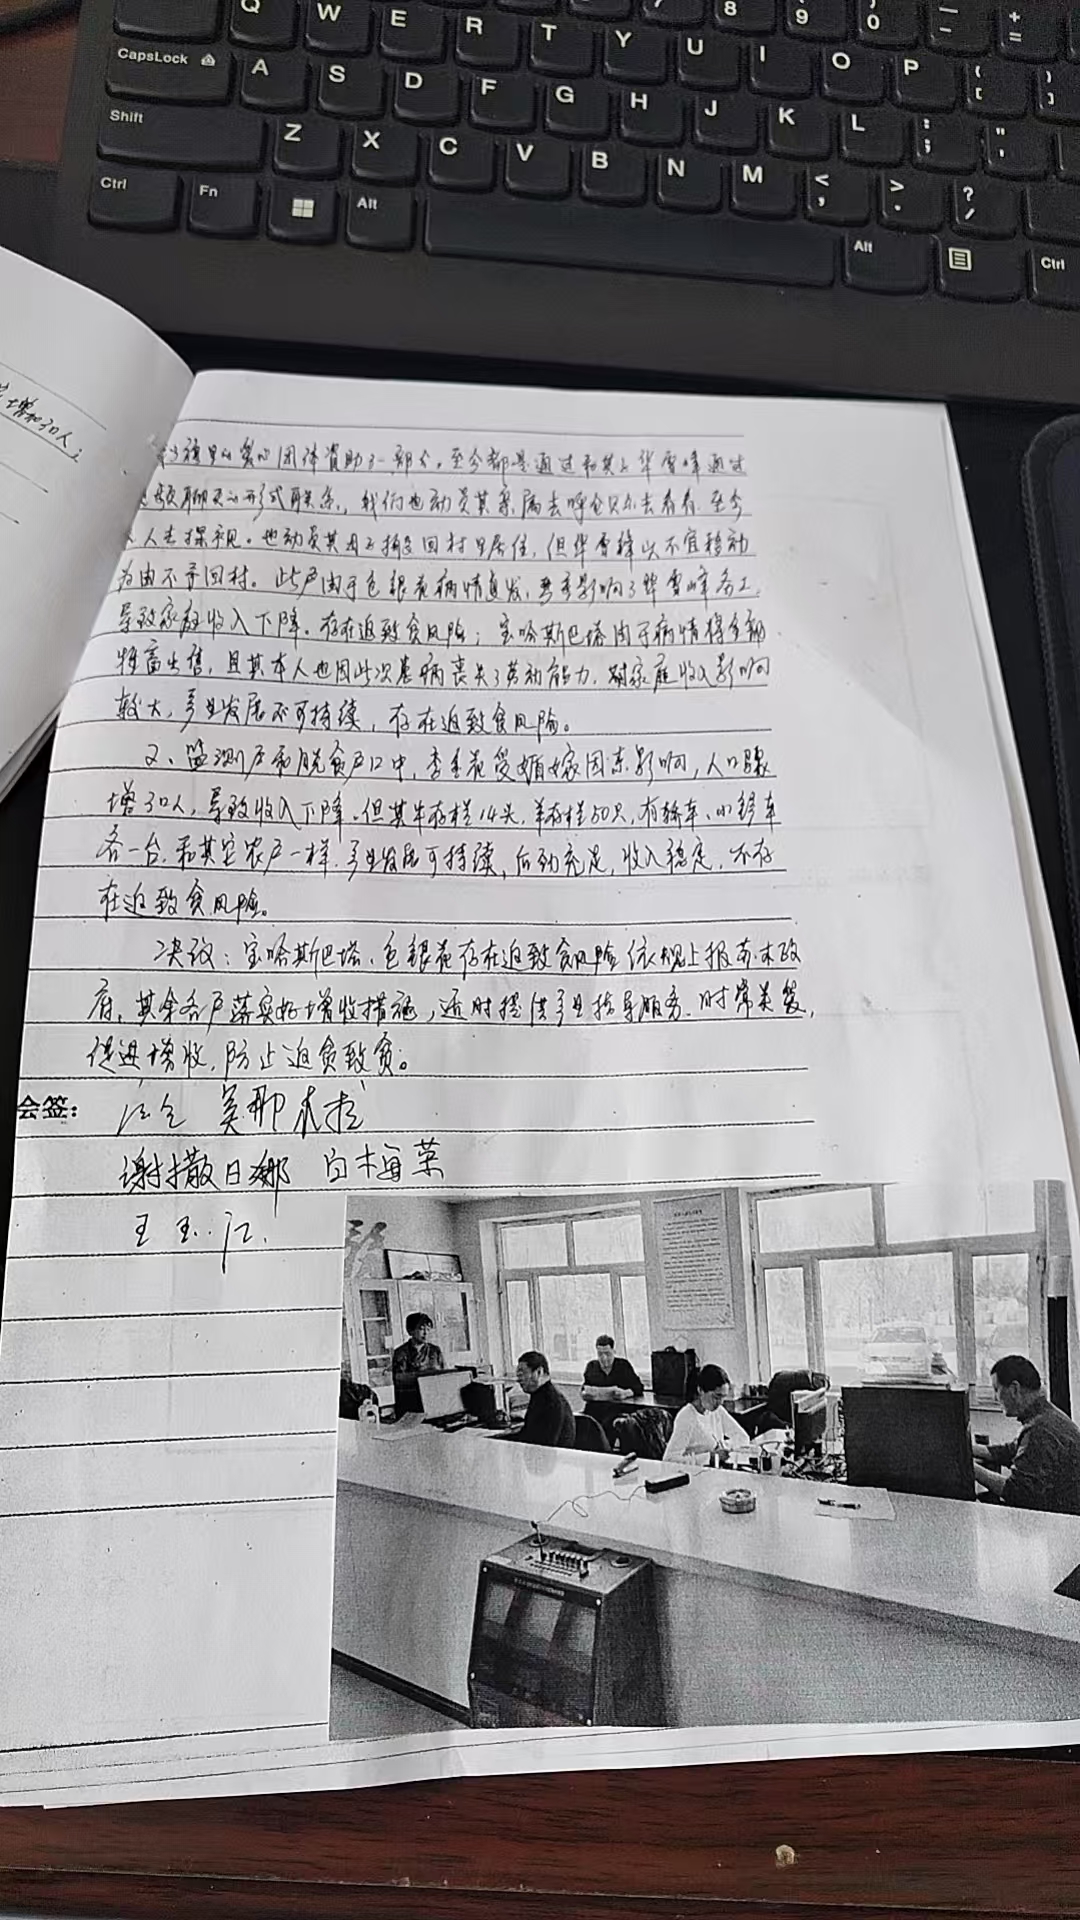 Q W E R T Y U I O P
CapsLock A S D F G H J K L
Shift Z X C V B N M
Ctrl Fn Alt Alt Ctrl
增加30人
爱心团体资助了一部分。至今都是通过和其 华雪峰通过
聊天的形式联系,我们也动员其亲属去呼伦贝尔去看看,至今
人去探视。也动员其 回村里居住,但华雪峰以不宜移动
为由不予回村。此户由于包银花病情复发,严重影响了华雪峰务工,
导致家庭收入下降,存在返致贫风险;宝哈斯巴塔由于病情将全部
牲畜出售,且其本人也因此次患病丧失了劳动能力,对家庭收入影响
较大,产业发展不可持续,存在返致贫风险。
2、监测户和脱贫户口中,李 花受婚嫁因素影响,人口骤
增 人,导致收入下降。但其牛存栏14头,羊存栏50只,有轿车、 车
各一台,和其它农户一样,产业发展可持续,后劲充足,收入稳定,不存
在返致贫风险。
决议:宝哈斯巴塔、包银花存在返致贫风险依规上报苏木政
府,其余各户落实好增收措施,适时提供产业指导服务,时常关爱,
促进增收,防止返贫致贫。
会签: 吴那木拉
谢撒日娜 白梅菜
王玉江